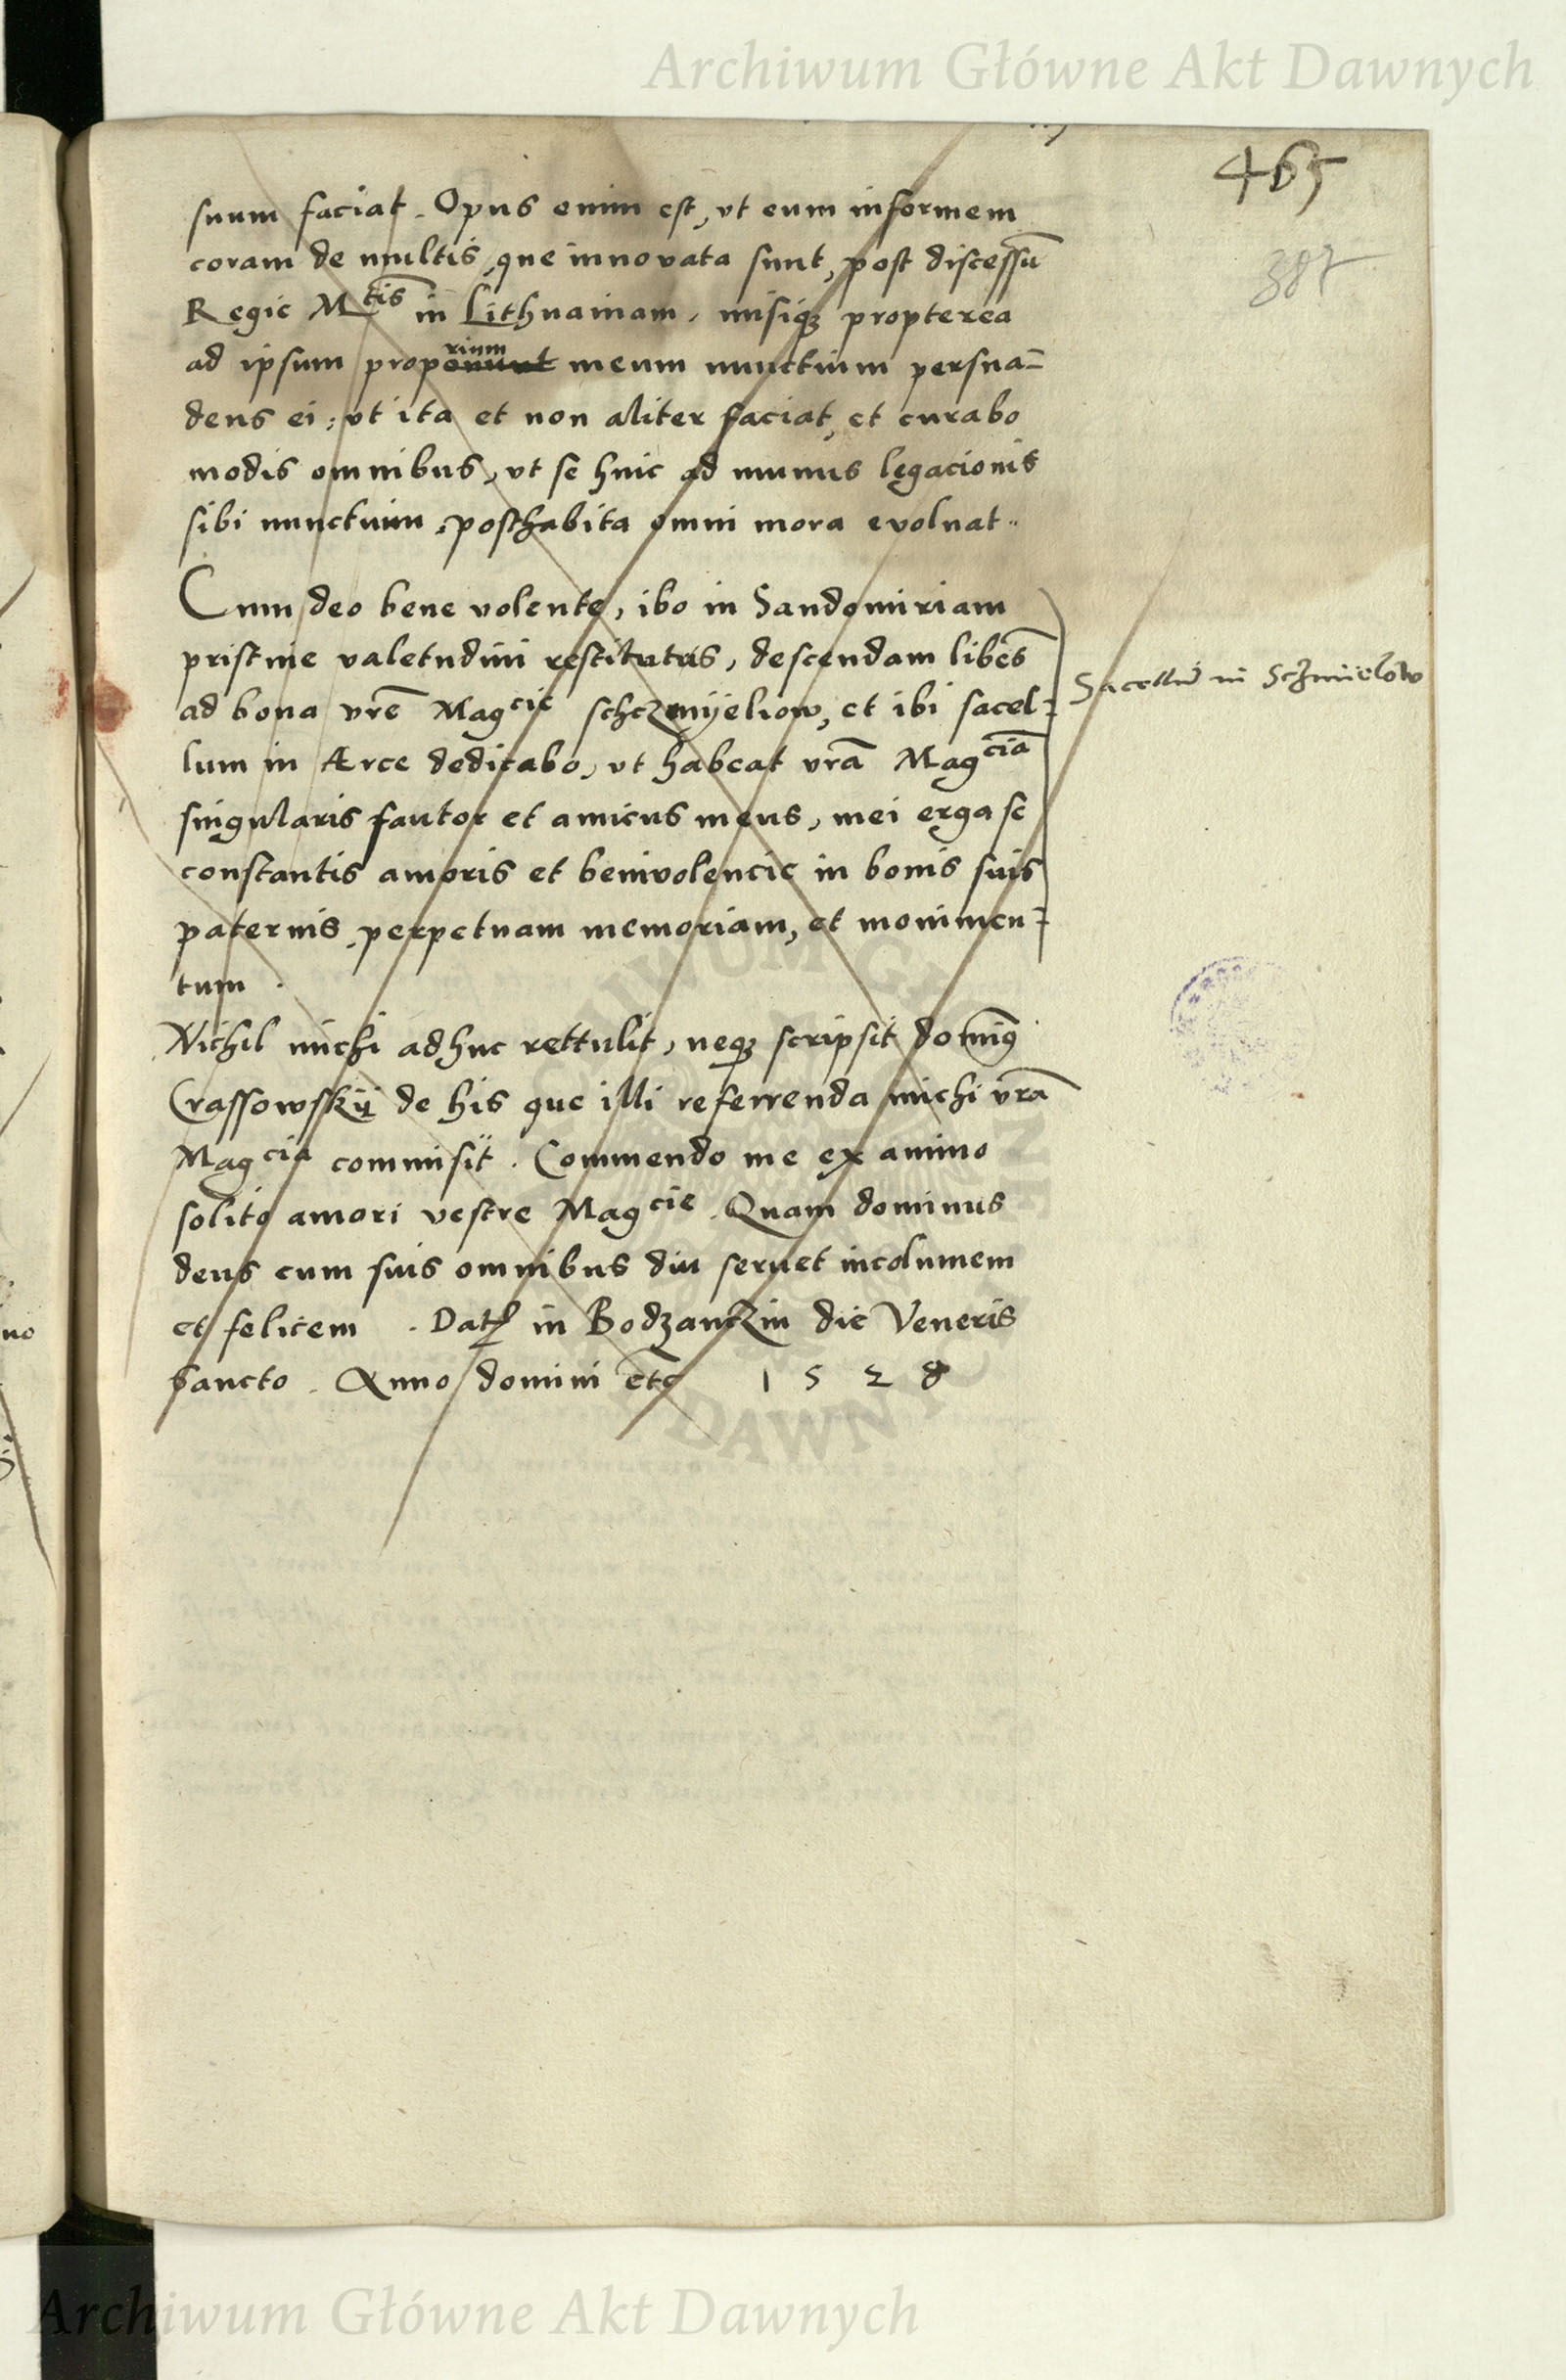 Archiwum Główne Akt Dawnych
465
387
suum faciat. Opus enim est, vt eum informem
coram de multis, que innovata sunt, post discessū
Regie Mtis in Lithuaniam, misiqꝫ propterea
ad ipsum proponunt rium meum nunctium persua=
dens ei, vt ita et non aliter faciat, et curabo
modis omnibus, vt se huic ad munus legacionis
sibi nunctium, posthabita omni mora evoluat..
Cum deo bene volente, ibo in Sandomiriam
pristine valetudini restitutus, descendam libēs
ad bona vrē Magcie schczmyeliow, et ibi sacel=
lum in Arce dedicabo, vt habeat vrā Magciā
singularis fautor et amicus meus, mei erga se
constantis amoris et benivolencie in bonis suis
paternis, perpetuam memoriam, et monimen=
tum.
Sacellū in Schmielow
Nichil michi adhuc rettulit, neqꝫ scripsit domīꝰ
Crassowskij de his que illi referrenda michi vrā
Magcia commisit. Commendo me ex animo
solito amori vestre Magcie. Quam dominus
deus cum suis omnibus diu seruet incolumem
et felicem. Datꝭ in Bodzanczin die Veneris
sancto. Anno domini etc 1528
Archiwum Główne Akt Dawnych